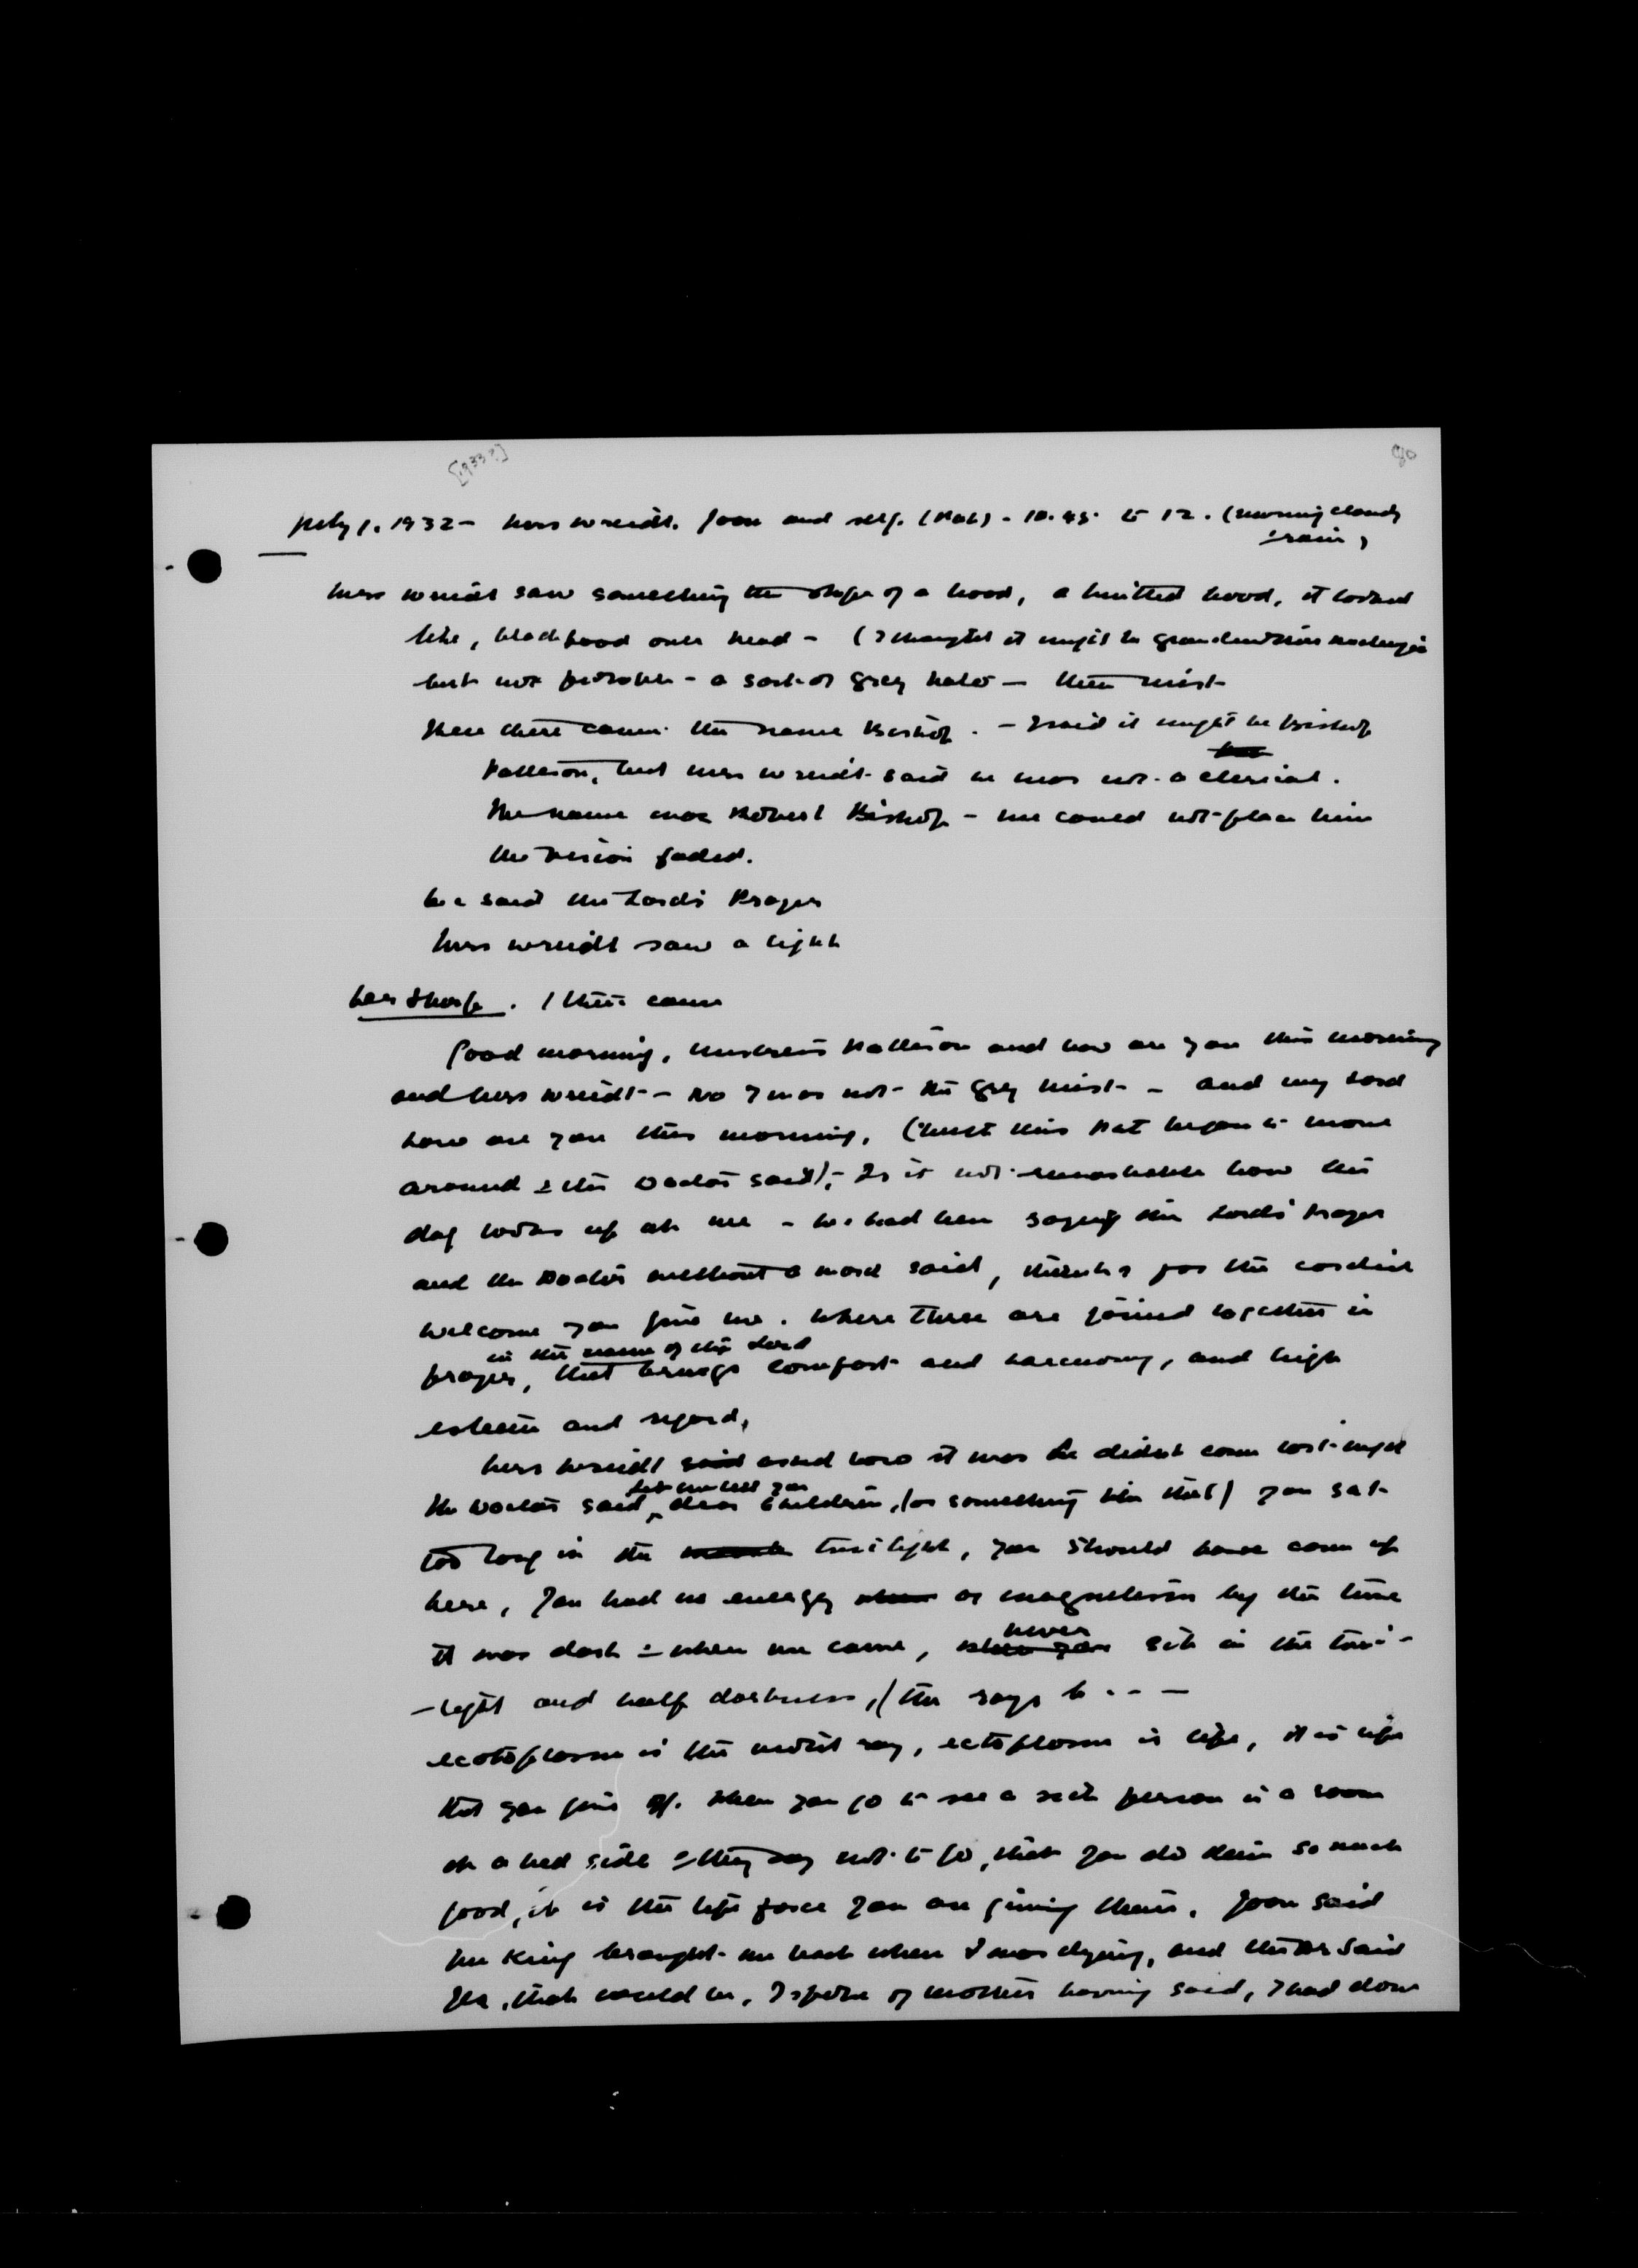 [1933?]
90
July 1. 1932 - Mrs Wriedt. Joan and self. (Pat) - 10.45. to 12. (morning cloudy
& rain,
Mrs Wriedt saw something the shape of a hood, a knitted hood, it looked
like, black hood over head - (I thought it might be grandmother Mackenzie
but not probable - a sort of grey halo - then mist
Then there came the name Bishop. - I said it might be Bishop
Patteson, but Mrs Wriedt said he was not a clerical.
The name was Robert Bishop - we could not place him
the vision faded.
We said the Lord's Prayer
Mrs Wriedt saw a light
Dr Sharp. / then came
Good morning, Mistress Patteson and how are you this morning
and Mrs Wriedt - No I was not the grey mist - and my Lord
how are you this morning, (but this Pat began to move
around & the Doctor said), Is it not remarkable how the
dog looks up at me - We had been saying the Lord's Prayer
and the Doctor without a word said, thanks for the cordial
welcome you give me. Where three are joined together in
in the name of the Lord
prayer, that brings comfort and harmony, and high
esteem and regard,
Mrs Wriedt said asked how it was he didnt come last night
let me tell you
the Doctor said, dear children, (or something like that) you sat
too long in the twilight, you should have come up
here, you had no energy or magnetism by the time
never
it was dark & when we came, when you sit in the twi-
-light and half darkness, / the rays b - - -
ectoplasm is the violet ray, ectoplasm is life, it is life
that you give off. When you go to see a sick person in a room
or a bed side & they say not to go, that you do them so much
good, it is the life force you are giving them. Joan said
Mr King brought me back when I was dying, and the Dr said
Yes, that would be, I spoke of mother having said, I had done